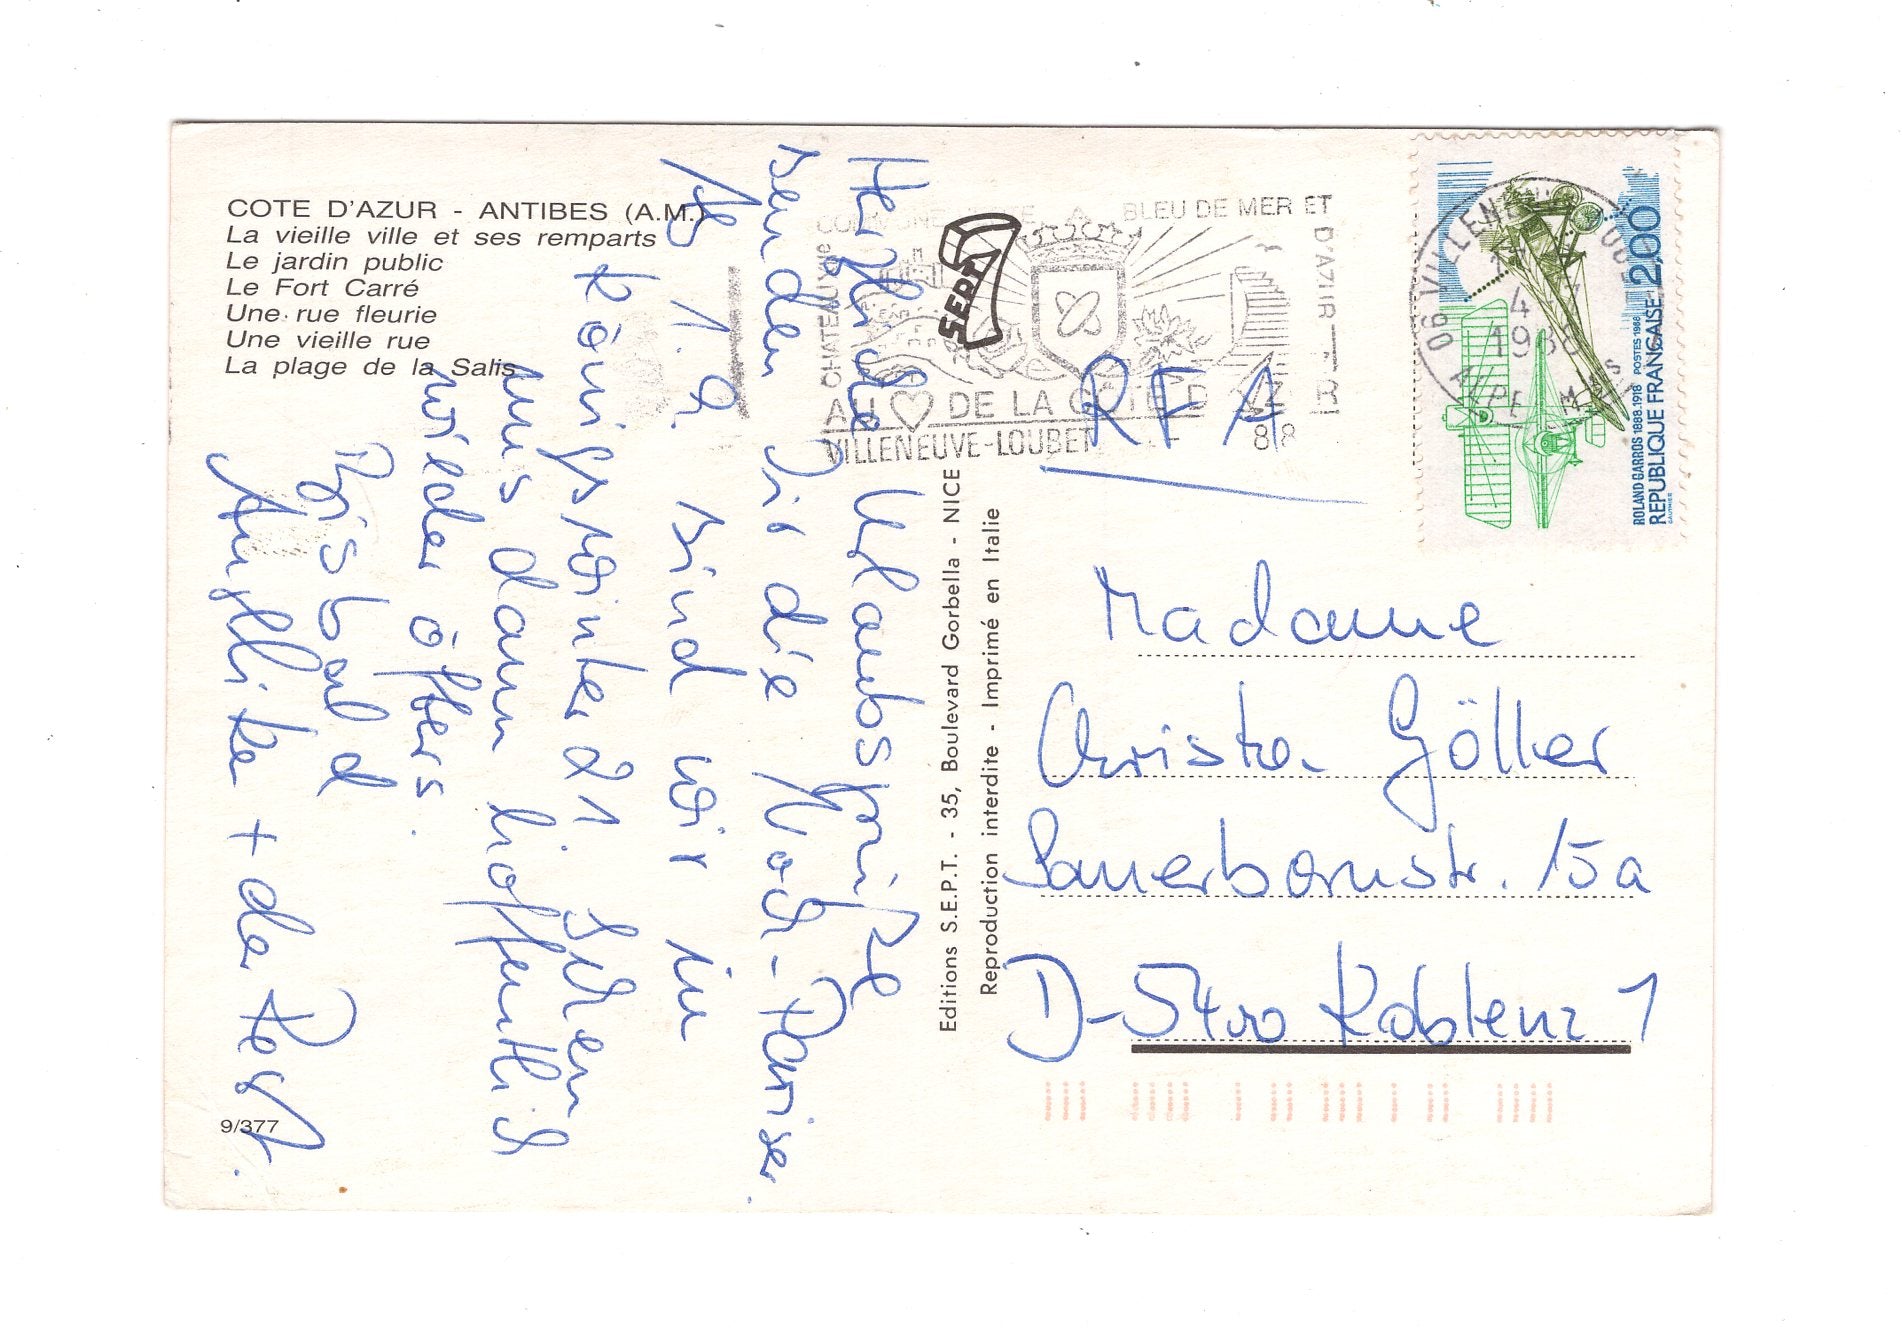 COTE D'AZUR - ANTIBES (A.M.)
La vieille ville et ses remparts
Le jardin public
Le Fort Carré
Une rue fleurie
Une vieille rue
La plage de la Salis
9/377
Herzliche Urlaubsgrüße
senden Dir die Noch-Pariser.
Ab 1.9. sind wir in
Königswinter 21 & sehen
uns dann hoffentlich
wieder öfters.
Bis bald
+ der Rest.
Editions S.E.P.T. - 35, Boulevard Gorbella - NICE
Reproduction interdite - Imprimé en Italie
SEPT
BLEU DE MER ET
D'AZUR
CHATEAU
AU DE LA COTE D
VILLENEUVE-LOUBET
88
06 VILLENEUVE LOUBET
4
1988
ALPES MMES
ROLAND GARROS 1888.1918 POSTES 1988
REPUBLIQUE FRANÇAISE 2,00
GAUTHIER
RFA
Madame
Christa Göller
Sauerbornstr. 15a
D-5400 Koblenz 1